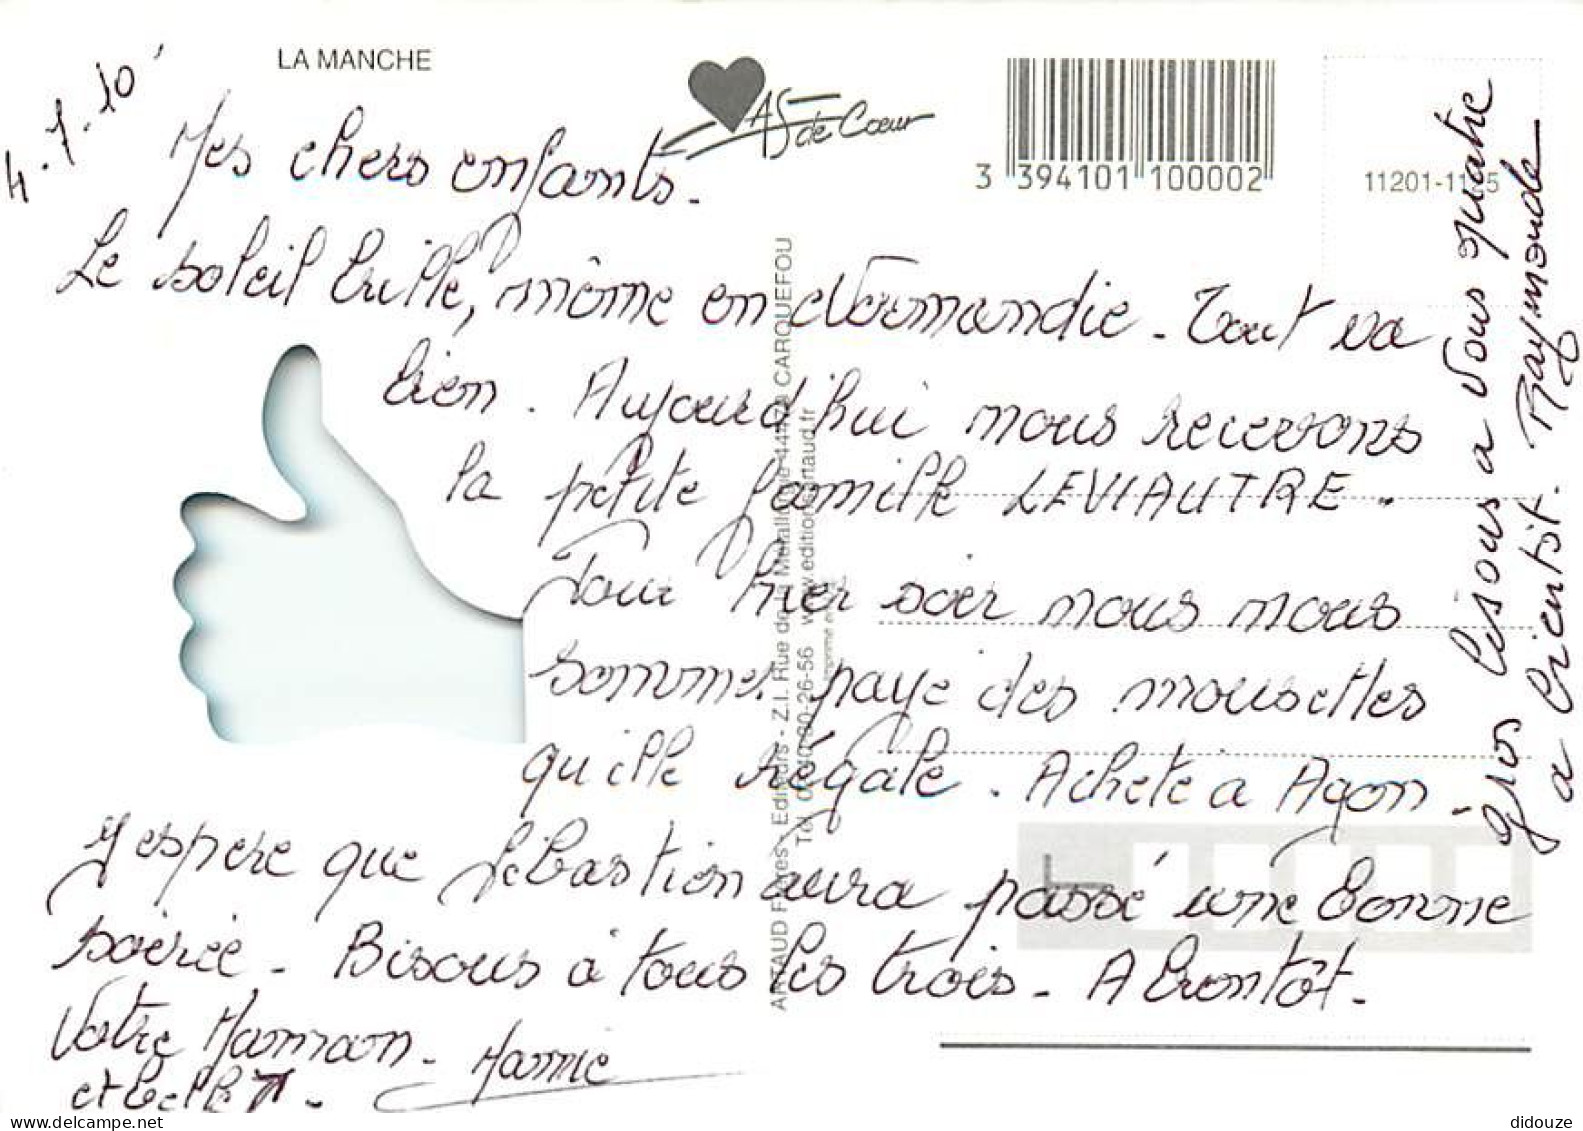 LA MANCHE
AS de Cœur
3 394101 100002
11201-1125
4.7.10
Mes chers enfants.
Le soleil brille, même en Normandie. Tout va
bien. Aujourd'hui nous recevons
la petite famille LEVIAUTRE.
hier soir nous nous
sommes payé des moussettes
qu'elle régale. Acheté a Agon.
J'espère que Sébastien aura passé une bonne
soirée. Bisous à tous les trois. A bientôt.
Votre Maman. Mamie
et belle M.
gros bisous a vous quatre
a bientôt. Raymonde
ARTAUD Frères - Editeurs - Z.I. Rue de la Métallurgie 44470 CARQUEFOU
Tél. 02-40-30-26-56 www.editionsartaud.fr
Imprimé en
didouze